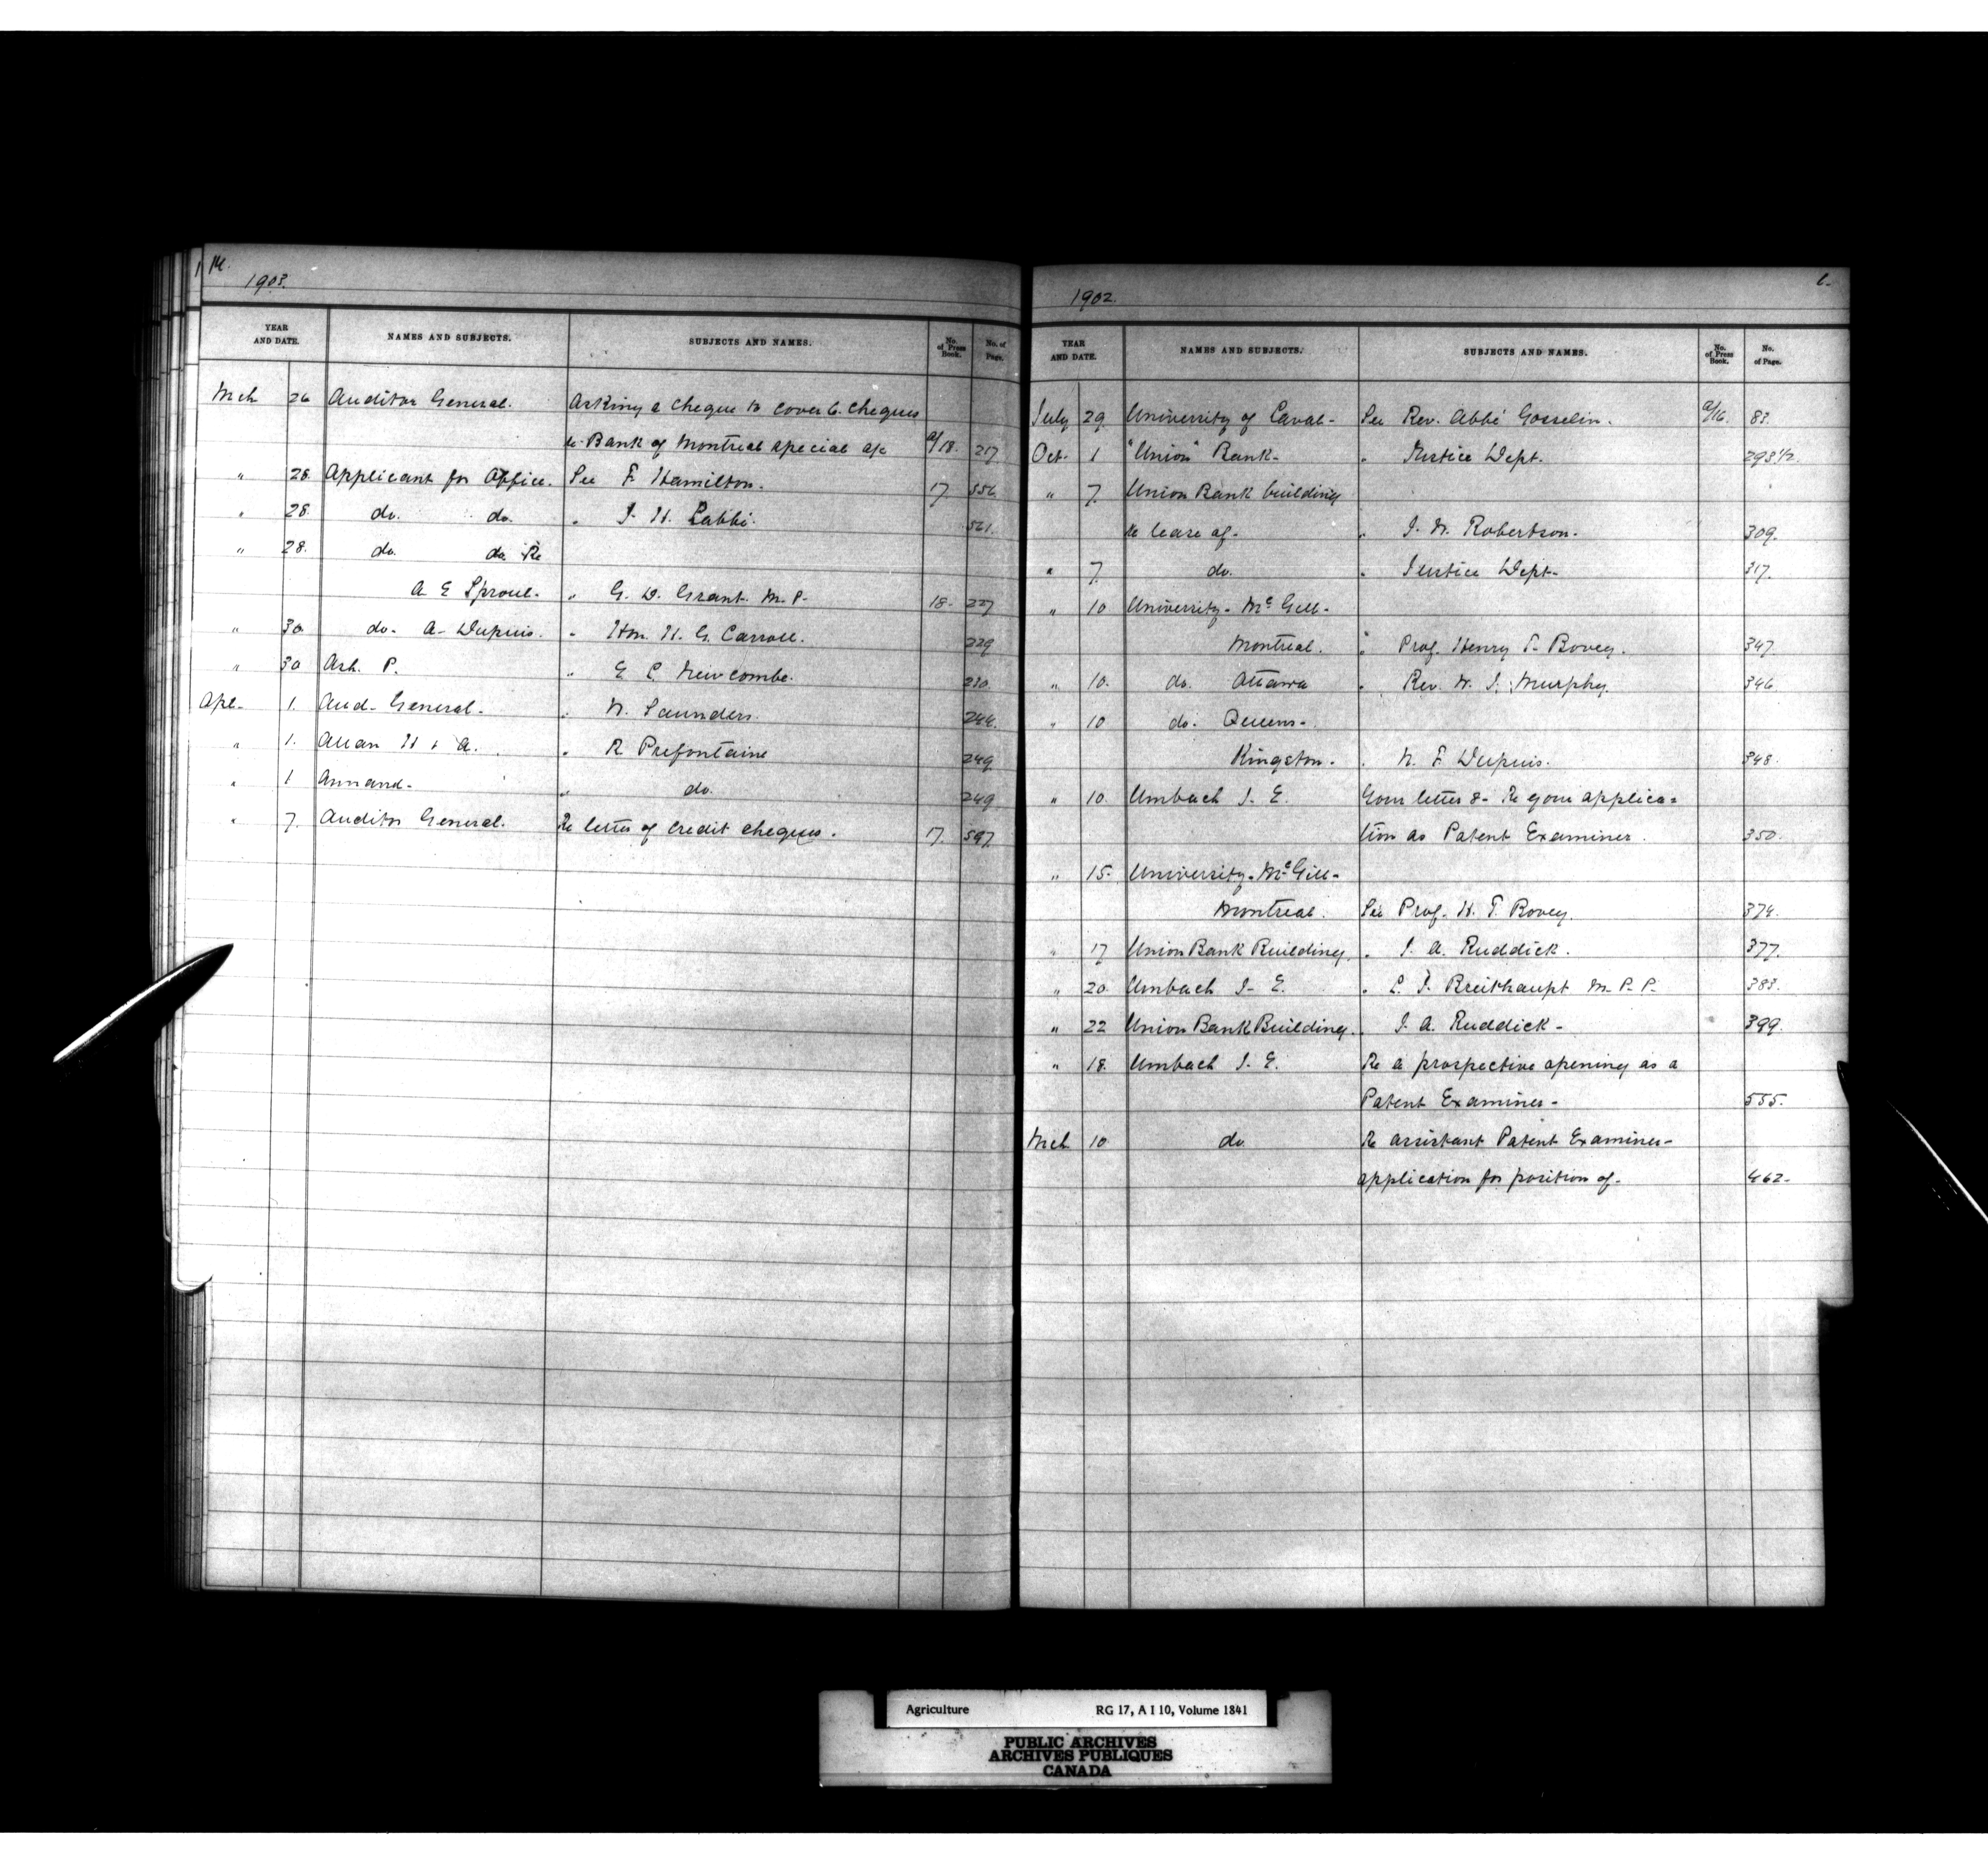 14.
1903.
YEAR AND DATE. NAMES AND SUBJECTS. SUBJECTS AND NAMES. No. of Press Book. No. of Page.
Mch 26 Auditor General. Asking a cheque to cover 6. cheques
re Bank of Montreal special a/c a/18. 217
" 28. Applicant for Office. See F. Hamilton. 17 556
" 28. do. do. " J. H. Labbé. 561.
" 28. do. do. Re
A E Sproul- " G. D. Grant. M. P. 18- 227
" 30. do- A- Dupuis. " Hon. H. G. Carroll. 229
" 30 Ash. P. " E L Newcombe. 230.
Apl- 1. Aud- General- " W. Saunders. 244.
" 1. Allan H & A. " R Prefontaine 249.
" 1 Annand- " do. 249
" 7. Auditor General. Re letter of credit cheques. 17. 597.
1902.
YEAR AND DATE. NAMES AND SUBJECTS. SUBJECTS AND NAMES. No. of Press Book. No. of Page.
July 29. University of Laval- See Rev. Abbé Gosselin. a/16. 83.
Oct- 1 "Union" Bank- " Justice Dept. 293½.
" 7. Union Bank building
re lease of- " J. W. Robertson- 309.
" 7. do. " Justice Dept- 317.
" 10 University- McGill-
Montreal. " Prof. Henry T- Bovey. 347.
" 10. do. Ottawa " Rev. W. J. Murphy. 346.
" 10 do- Queens-
Kingston- " N. F. Dupuis. 348.
" 10. Umbach J. E. Your letter 8- Re your applica=
tion as Patent Examiner. 350.
" 15- University- McGill-
Montreal. See Prof. H. T. Bovey. 374.
" 17 Union Bank Building. " J. A. Ruddick. 377.
" 20. Umbach J- E. " L. J. Breithaupt M- P- P- 383.
" 22 Union Bank Building. " J. A. Ruddick- 399.
" 18. Umbach J. E. Re a prospective opening as a
Patent Examiner- 555.
Mch 10. do Re assistant Patent Examiner-
application for position of- 462-
Agriculture RG 17, A I 10, Volume 1841
PUBLIC ARCHIVES
ARCHIVES PUBLIQUES
CANADA